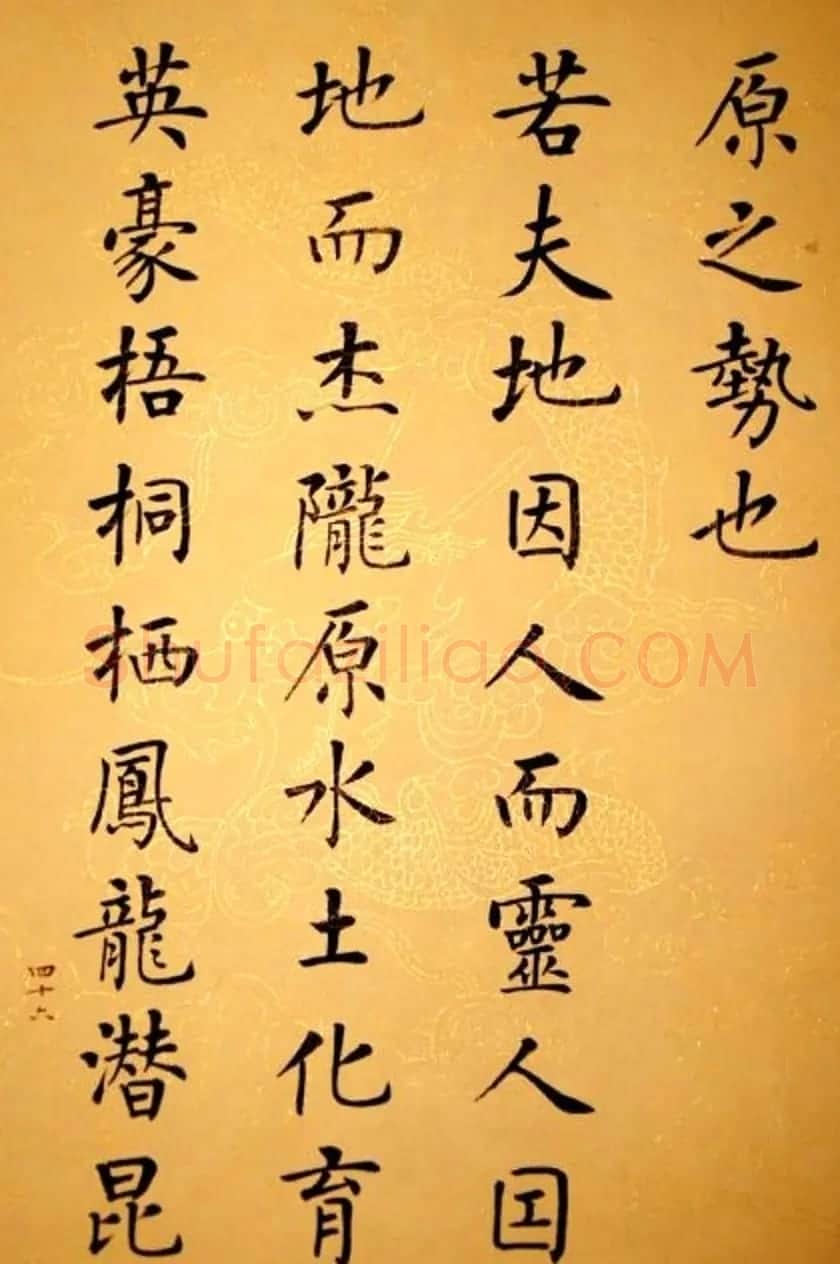 原之勢也
若夫地因人而靈人因
地而杰隴原水土化育
英豪梧桐栖鳳龍潛昆
四十六
Shufaziliao.COM